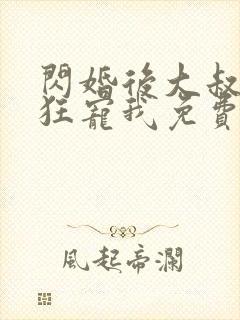 閃婚後大叔
狂寵我免費
風起帝瀾